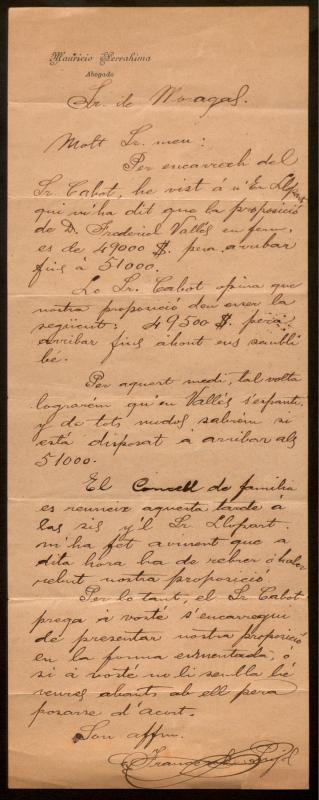 Mauricio Serrahima
Abogado
Sr. de Moragas.
Molt Sr. meu:
Per encarrech del
Sr. Cabot, he vist á n'En Llopart
qui m'ha dit que la proposició
de D. Frederich Vallés en ferm,
es de 49000 $. pera arribar
fins á 51000.
Lo Sr. Cabot opina que
nostra proposició deu esser la
següent: 49500 $. pera
arribar fins ahont ens sembli
bé.
Per aquest medi, tal volta
lograrém qu'en Vallés s'espanti,
y de tots modos sabrém si
está disposat á arribar als
51000.
El Concell de familia
es reuneix aquesta tarde á
las sis y'l Sr. Llopart.
m'ha fet avinent que a
dita hora ha de rebrer ó haber
rebut nostra proposició.
Per lo tant, el Sr. Cabot
prega á vosté s'encarregui
de presentar nostra proposició
en la forma esmentada, ó
si á vosté no li sembla bé
veures abants ab ell pera
posarse d'acort.
Son affm.